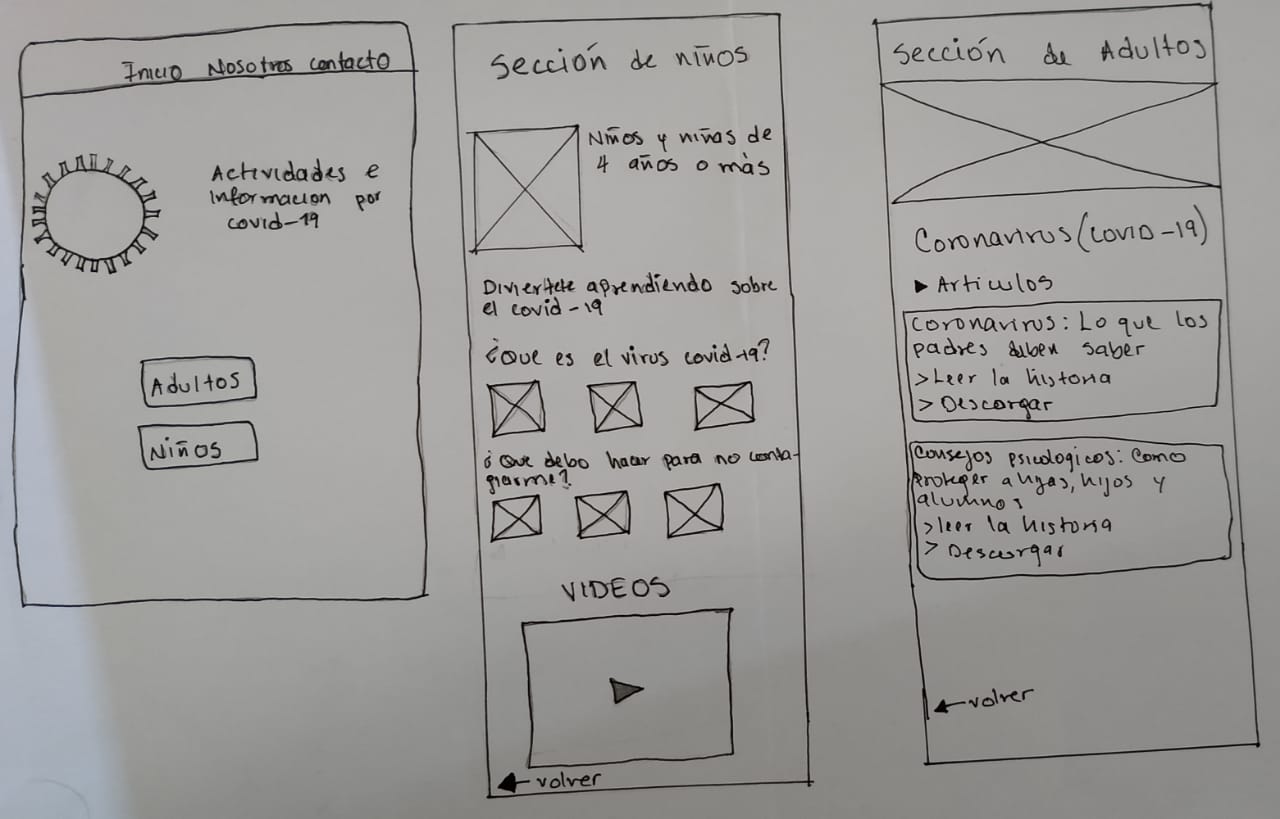 Inicio Nosotros contacto
Actividades e
informacion por
covid-19
Adultos
Niños
Sección de niños
Niños y niñas de
4 años o más
Diviertete aprendiendo sobre
el covid-19
¿Que es el virus covid-19?
¿Que debo hacer para no conta-
giarme?
VIDEOS
volver
Sección de Adultos
Coronavirus (COVID-19)
Articulos
Coronavirus: Lo que los
padres deben saber
>Leer la historia
> Descargar
Consejos psicologicos: Como
proteger a hijas, hijos y
alumnos
>leer la historia
> Descargar
volver